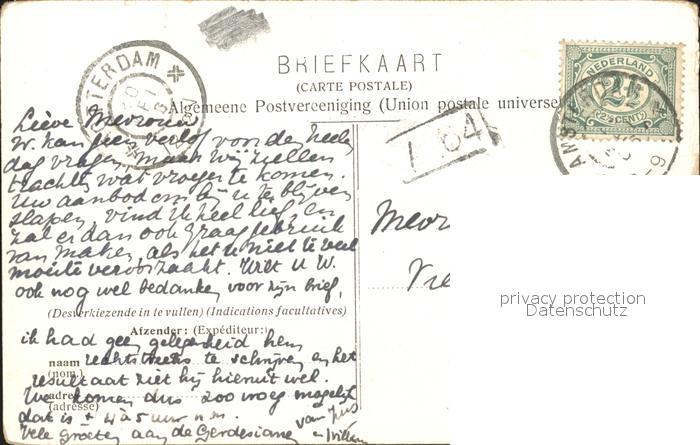 BRIEFKAART
(CARTE POSTALE)
Algemeene Postvereeniging (Union postale universel
NEDERLAND
2½
(2½CENT)
AMSTERDAM
TERDAM
L 64
Lieve Mevrouw
W. kan geen verlof voor den heelen
dag vragen, maar wij zullen
trachten wat vroeger te komen.
Uw aanbod om bij u te blijven
slapen, vind ik heel lief en
zal er dan ook graag gebruik
van maken, als het u niet te veel
moeite veroorzaakt. Wilt U W.
ook nog wel bedanken voor zijn brief,
(Deszverkiezende in te vullen) (Indications facultatives)
Afzender: (Expéditeur:)
ik had geen gelegenheid hem
naam rechtstreeks te schrijven en het
(nom)
resultaat ziet hij hieruit wel.
adres We komen dus zoo vroeg mogelijk
(adresse)
dat is ± 4 à 5 uur n.m.
Vele groeten aan de Gerdesiane van Jus
en Willem
Mevr
privacy protection
Datenschutz